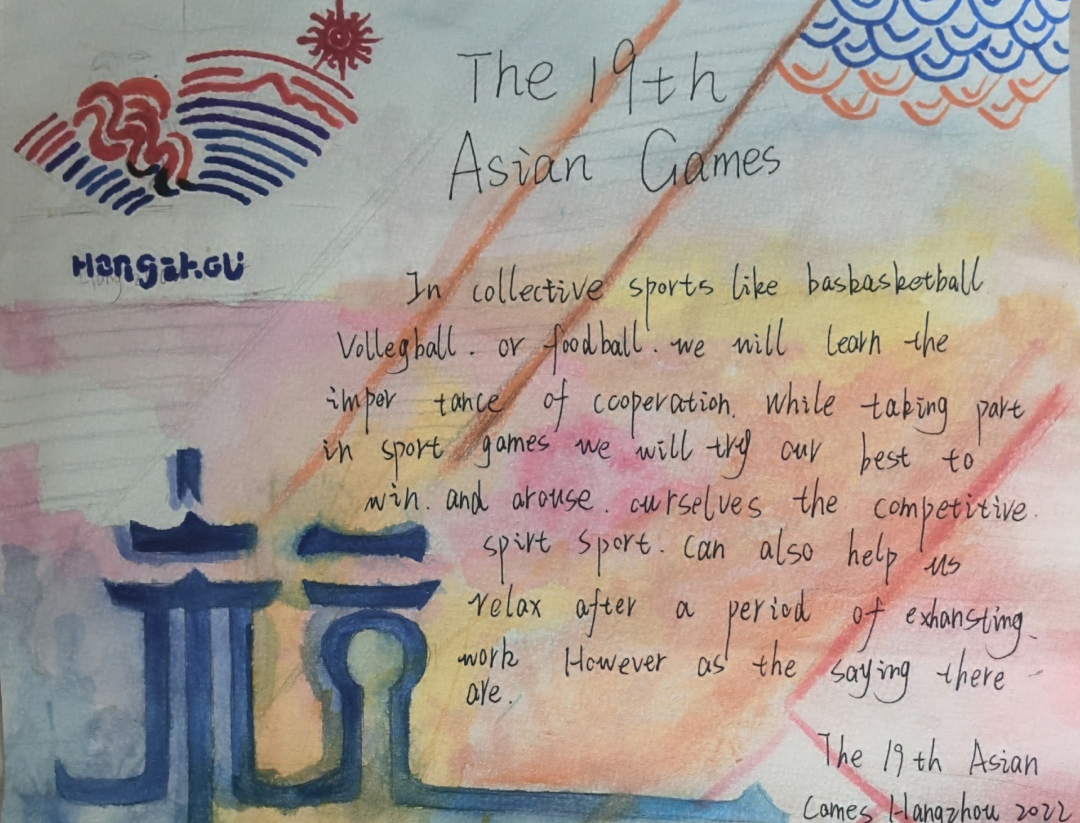 The 19th
Asian Games
HangzhOU
In collective sports like basbasketball
Vollegball. or foodball. we will learn the
impor tance of cooperation. While taking part
in sport games we will try our best to
win. and arouse. ourselves the competitive.
spirt sport. Can also help us
relax after a period of exhansting
work However as the saying there
are.
The 19th Asian
Games Hangzhou 2022